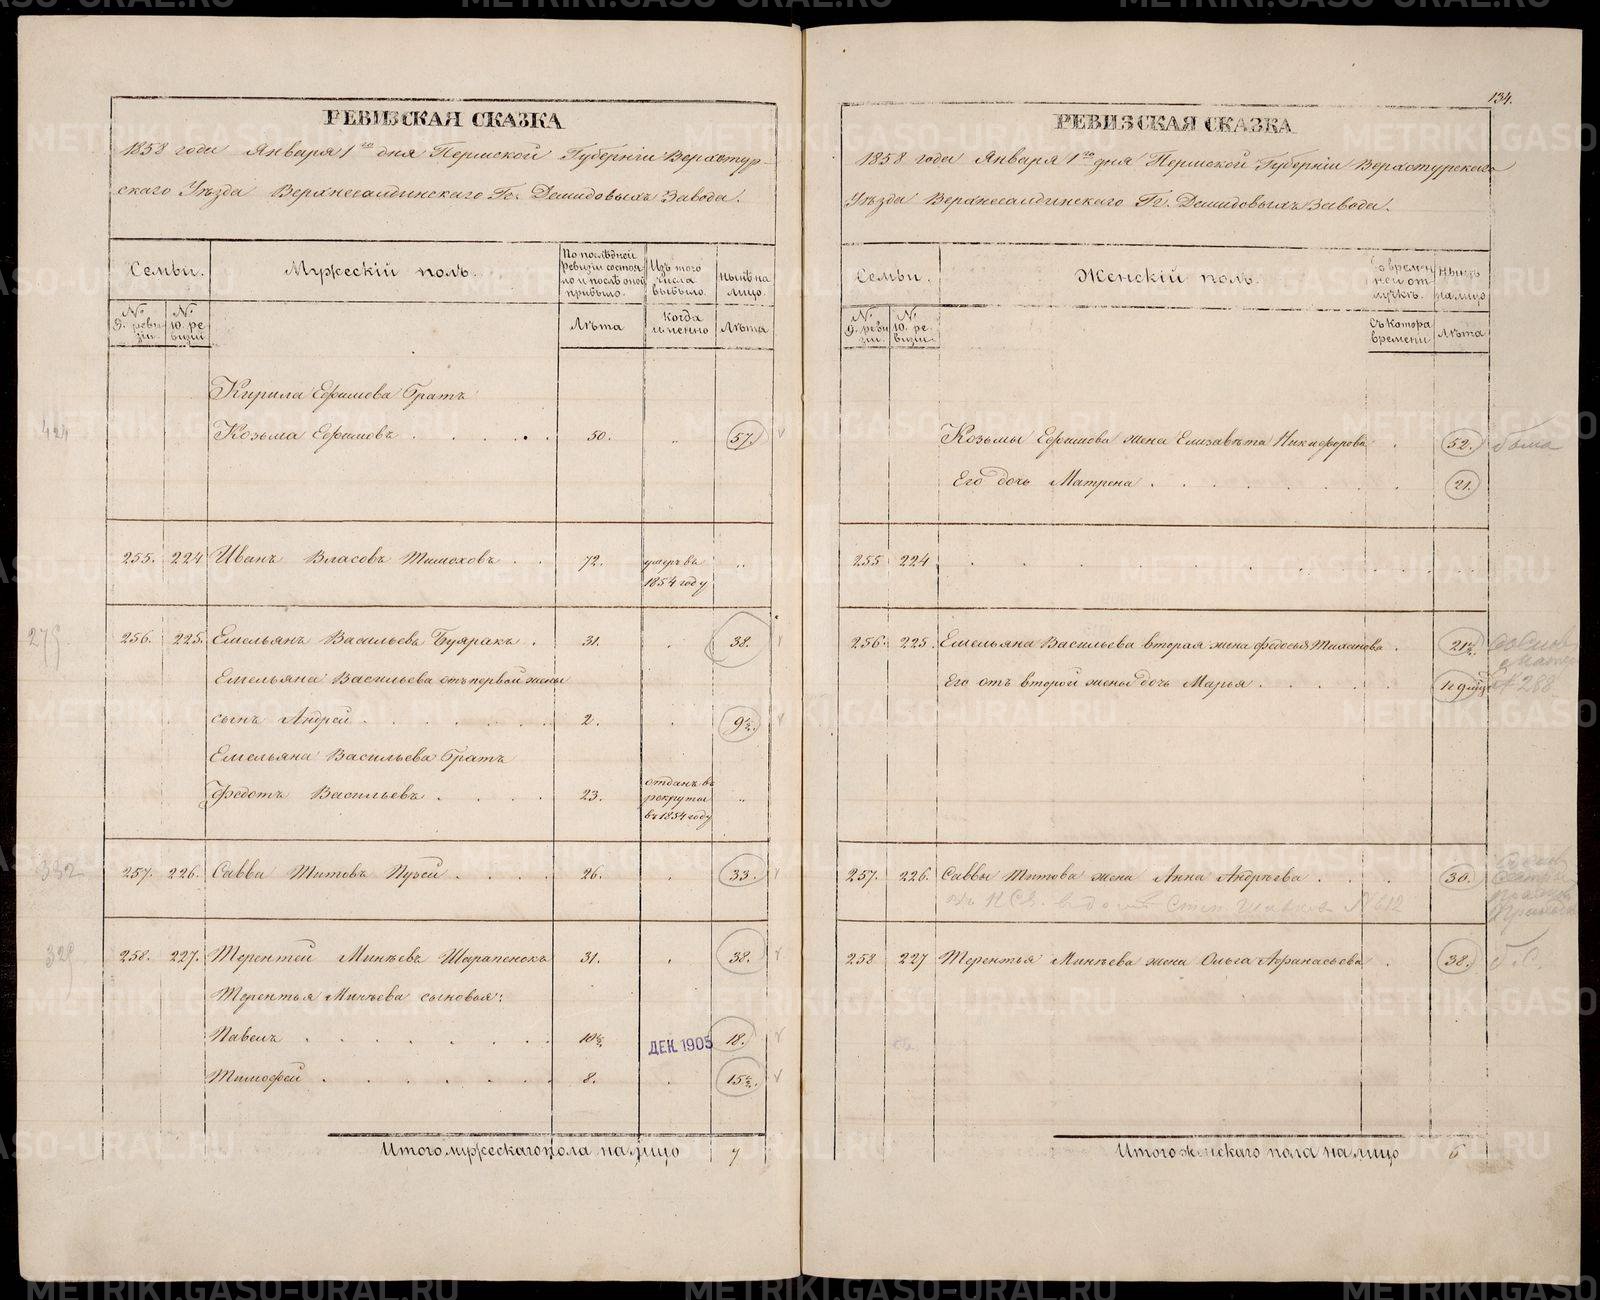 134.
РЕВИЗСКАЯ СКАЗКА
1858 года Января 1го дня Пермской Губерніи Верхотур-
скаго Уѣзда Верхнесалдинскаго Гг. Демидовыхъ Завода.
Семьи.
Мужескій полъ.
По послѣдней
Ревизіи состоя-
ло и послѣ оной
прибыло.
Изъ того
числа
выбыло.
нынѣ на
лицо.
№ 9. реви-
зіи
№ 10. ре-
визіи
Лѣта
Когда
именно
Лѣта
Кирила Ефимова братъ
424
Козьма Ефимовъ . . . . 50. „ 57.
255. 224 Иванъ Власовъ Тимоховъ . . 72. умеръ въ
1854 году „
275.
256. 225. Емельянъ Васильевъ Буяракъ . 31. . 38.
Емельяна Васильева отъ первой жены
сынъ Андрей . . . . . . 2. . 9½.
Емельяна Васильева братъ
Федотъ Васильевъ . . . . 23. отданъ въ
рекруты
въ 1854 году „
332
257. 226. Савва Титовъ Пузей . . . . 26. . 33.
329.
258. 227. Терентей Минѣевъ Шарапенокъ 31. . 38.
Терентья Минѣева сыновья:
Павелъ . . . . . . . 10½. ДЕК. 1905 18.
Тимофей . . . . . . . 8. . 15½.
Итого мужескаго пола на лицо 7
РЕВИЗСКАЯ СКАЗКА
1858 года Января 1го дня Пермской Губерніи Верхотурскаго
Уѣзда Верхнесалдинскаго Гг. Демидовыхъ Завода.
Семьи.
Женскій полъ.
Во времен-
ной от-
лучкѣ.
нынѣ
на лицо
№ 9. реви-
зіи.
№ 10. ре-
визіи.
Съ котора
времени
Лѣта
Козьмы Ефимова жена Елизавѣта Никифорова . 52.
Его дочь Матрена . . . . . . . 21.
255 224 . . . . . . . . . . .
256. 225. Емельяна Васильева вторая жена Федосья Тиханова . 21½.
Его отъ второй жены дочь Марья . . . . .
№ 288
257. 226. Саввы Титова жена Анна Андрѣева . . . . 30.
№ 612
258 227 Терентья Минѣева жена Ольга Афанасьева . 38.
Итого женскаго пола на лицо 6
METRIKI.GASO-URAL.RU